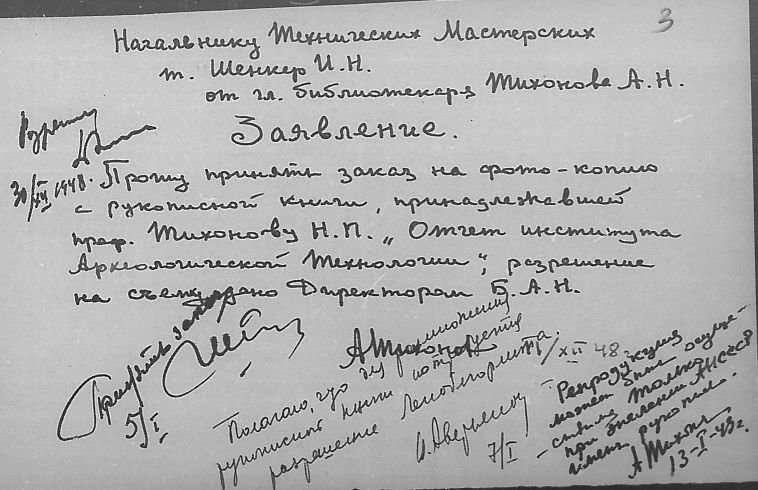 3
Начальнику Технических Мастерских
т. Шенкер И.Н.
от гл. библиотекаря Тихонова А.Н.
Заявление.
30/XII 1948.
Прошу принять заказ на фото-копию
с рукописной книги, принадлежавшей
проф. Тихонову Н.П. „Отчет института
Археологической Технологии", разрешение
на съемку дано Директором Б.А.Н.
Принять заказ
5/I
АТихонов
XII 48
Полагаю, что для размножения
рукописной книги потребуется
разрешение Ленобгорлита.
7/I
Репродукция
может быть осуще-
ствлена только
при
рукописи.
АТихон
13-I-49г.